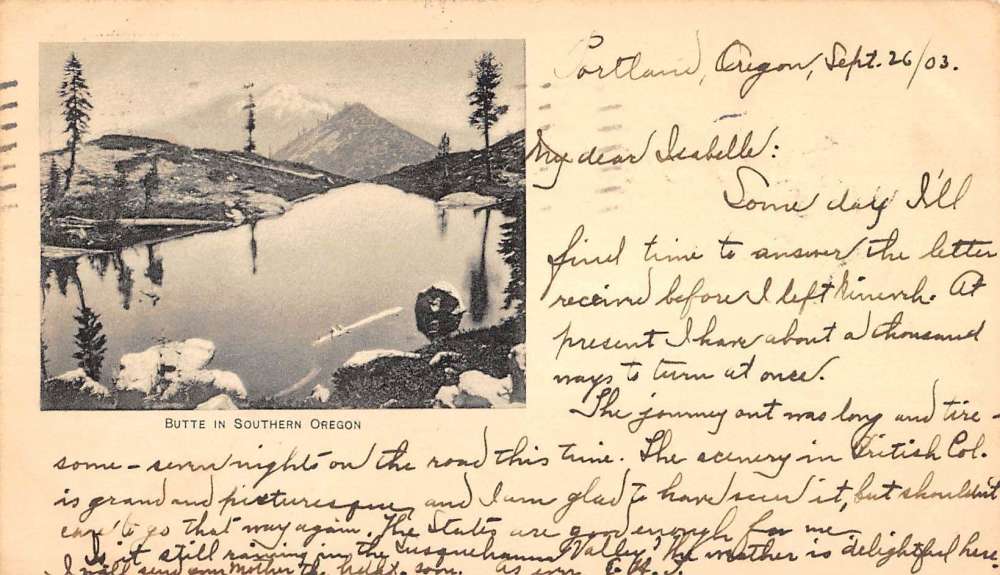 Portland, Oregon, Sept. 26/03.
My dear Isabelle:
Some day I'll
find time to answer the letter
received before I left Nineveh. At
present I have about a thousand
ways to turn at once.
The journey out was long and tire-
some - seven nights on the road this time. The scenery in British Col.
is grand and picturesque, and I am glad to have seen it, but shouldn't
care to go that way again. The States are good enough for me.
Is it still raining in the Susquehanna Valley? The weather is delightful here.
I will send your Mother the soon. As ever
BUTTE IN SOUTHERN OREGON